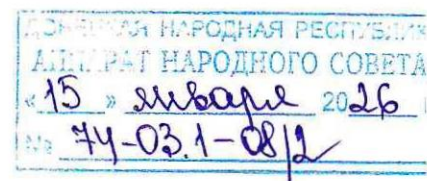 ДОНЕЦКАЯ НАРОДНАЯ РЕСПУБЛИКА
АППАРАТ НАРОДНОГО СОВЕТА
«15» января 2026 г
№ 74-03.1-08/2